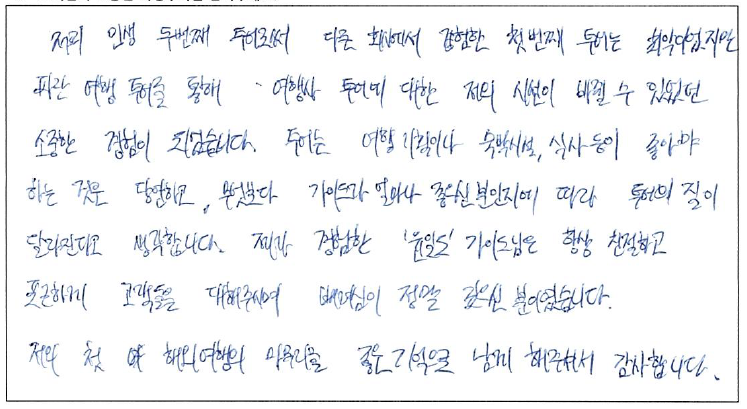 저의 인생 두번째 투어로써 다른 회사에서 경험한 첫번째 투어는 최악이었지만
여행 투어를 통해 여행사 투어에 대한 저의 시선이 바뀔 수 있었던
소중한 경험이 되었습니다. 투어는 여행 기획이나 숙박시설, 식사 등이 좋아야
하는 것은 당연하고, 무엇보다 가이드가 얼마나 좋으신 분인지에 따라 투어의 질이
달라진다고 생각합니다. 제가 경험한 가이드님은 항상 친절하고
포근하게 고객들을 대해주시며 배려심이 정말 깊으신 분이였습니다.
저의 첫 해외여행의 마무리를 좋은 기억으로 남게 해주셔서 감사합니다.